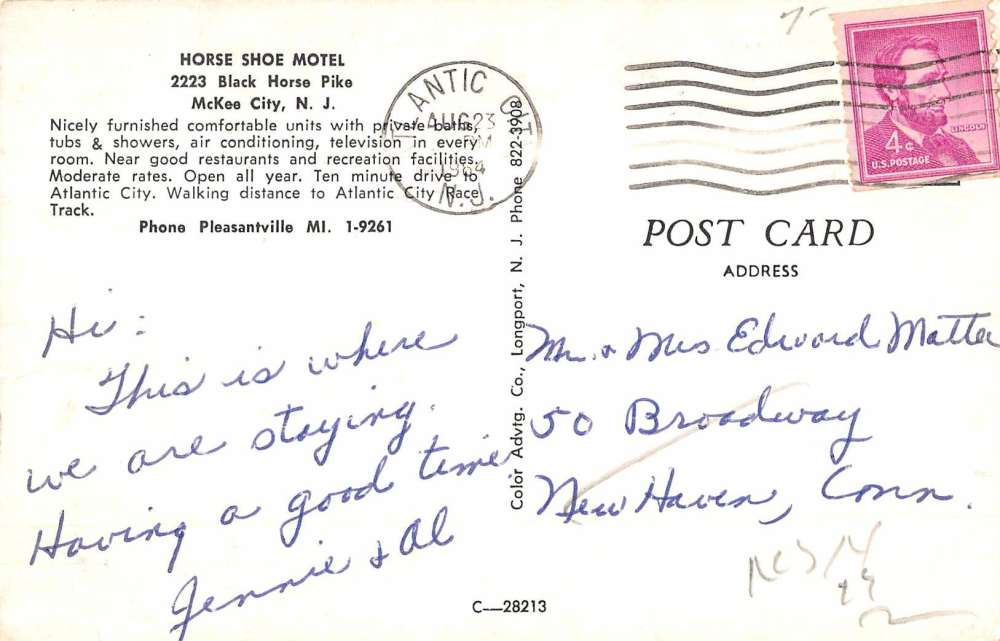 HORSE SHOE MOTEL
2223 Black Horse Pike
McKee City, N. J.
Nicely furnished comfortable units with private baths,
tubs & showers, air conditioning, television in every
room. Near good restaurants and recreation facilities.
Moderate rates. Open all year. Ten minute drive to
Atlantic City. Walking distance to Atlantic City Race
Track.
Phone Pleasantville MI. 1-9261
ANTIC CIT
AUG 23
PM
1964
N.J.
LINCOLN
4¢
U.S. POSTAGE
POST CARD
ADDRESS
Color Advtg. Co., Longport, N. J. Phone 822-3908
Hi:
This is where
we are staying.
Having a good time
Jennie & Al
Mr. & Mrs Edward Matte
50 Broadway
New Haven, Conn.
C—28213